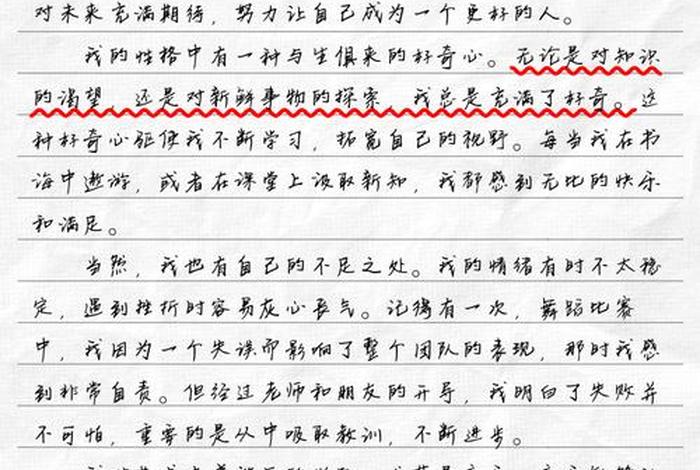 对未来充满期待，努力让自己成为一个更好的人。
我的性格中有一种与生俱来的好奇心。无论是对知识
的渴望，还是对新鲜事物的探索，我总是充满了好奇。这
种好奇心驱使我不断学习，拓宽自己的视野。每当我在书
海中遨游，或者在课堂上汲取新知，我都感到无比的快乐
和满足。
当然，我也有自己的不足之处。我的情绪有时不太稳
定，遇到挫折时容易灰心丧气。记得有一次，舞蹈比赛
中，我因为一个失误而影响了整个团队的表现，那时我感
到非常自责。但经过老师和朋友的开导，我明白了失败并
不可怕，重要的是从中吸取教训，不断进步。